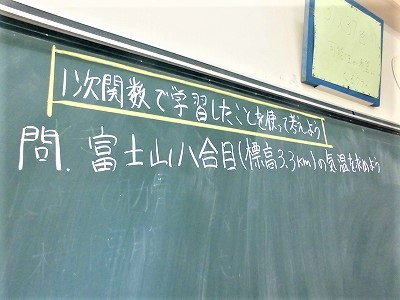 1次関数で学習したことを使って考えよう!
問.富士山八合目(標高3.3km)の気温を求めよう